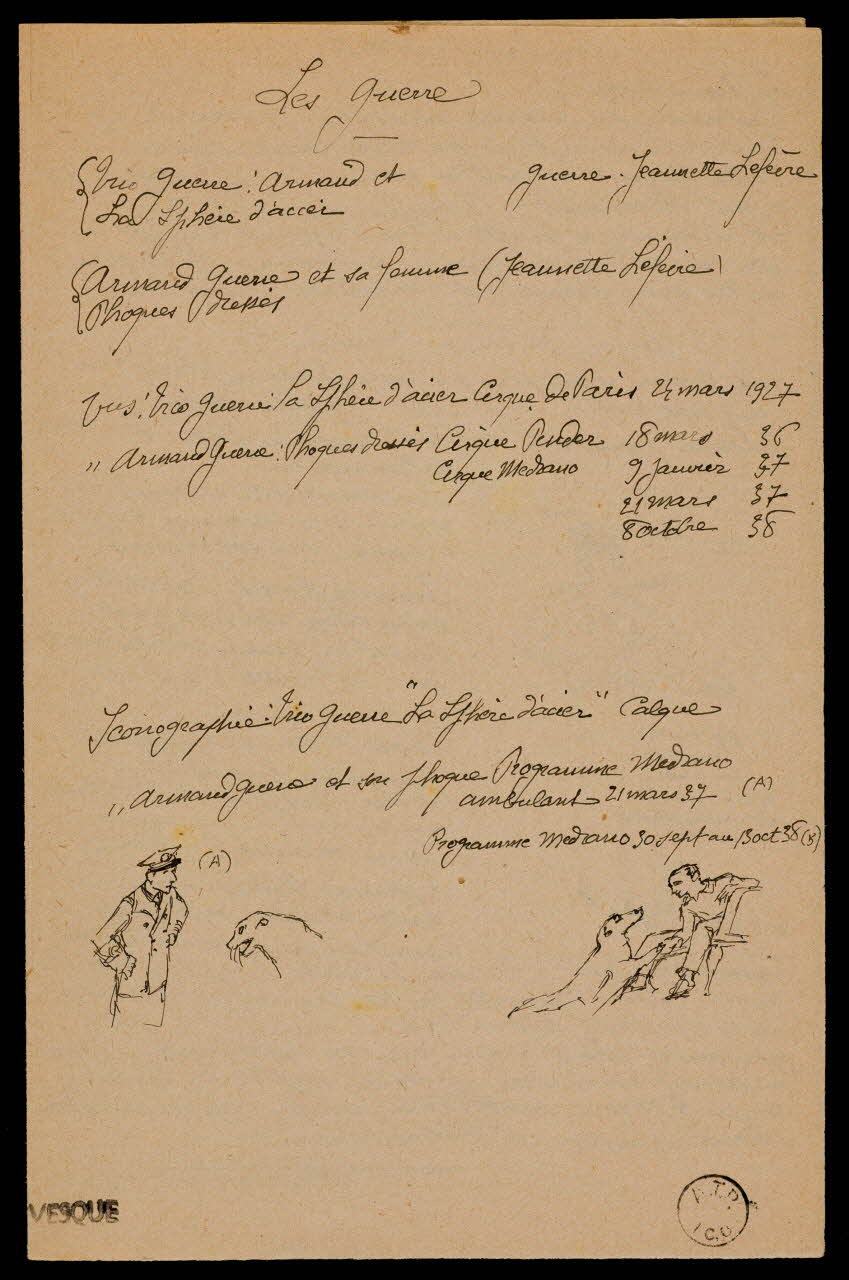 Les Guerre
Trio Guerre : Armand et Guerre . Jeannette Lefèvre
La Sphère d'acier
Armand Guerre et sa femme (Jeannette Lefèvre)
Phoques dressés
Vus : Trio Guerre la Sphère d'acier Cirque de Paris 24 mars 1927
" Armand Guerre : Phoques dressés Cirque Pinder 18 mars 36
Cirque Medrano 9 Janvier 37
21 mars 37
8 octobre 38
Iconographie : Trio Guerre "La Sphère d'acier" Calque
" Armand Guerre et son phoque Programme Medrano
ambulant 21 mars 37 (A)
Programme Medrano 30 sept au 13 oct 38 (B)
(A)
VESQUE
A.T.P.